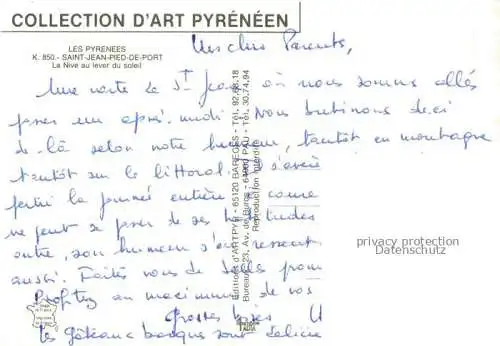 COLLECTION D'ART PYRÉNÉEN
LES PYRENEES
K. 850.- SAINT-JEAN-PIED-DE-PORT
La Nive au lever du soleil
Mes chers Parents,
Une carte de St Jean où nous sommes allés
passer un après-midi. Nous butinons deci
de-là selon notre humeur, tantôt en montagne
tantôt sur le littoral.
partir la journée entière
ne peut se passer de ses habitudes
outre, son humeur s'en ressent
aussi. Faites vous de belles
Profitez au maximum de vos
Grosses bises
les gâteaux basques sont délicieux
Editions d'ART PYR - 65120 BAREGES - Tél. 92.68.18
Bureau : 23, Av. de Buros - 64000 PAU - Tél. 30.74.94
Reproduction interdite
privacy protection
Datenschutz